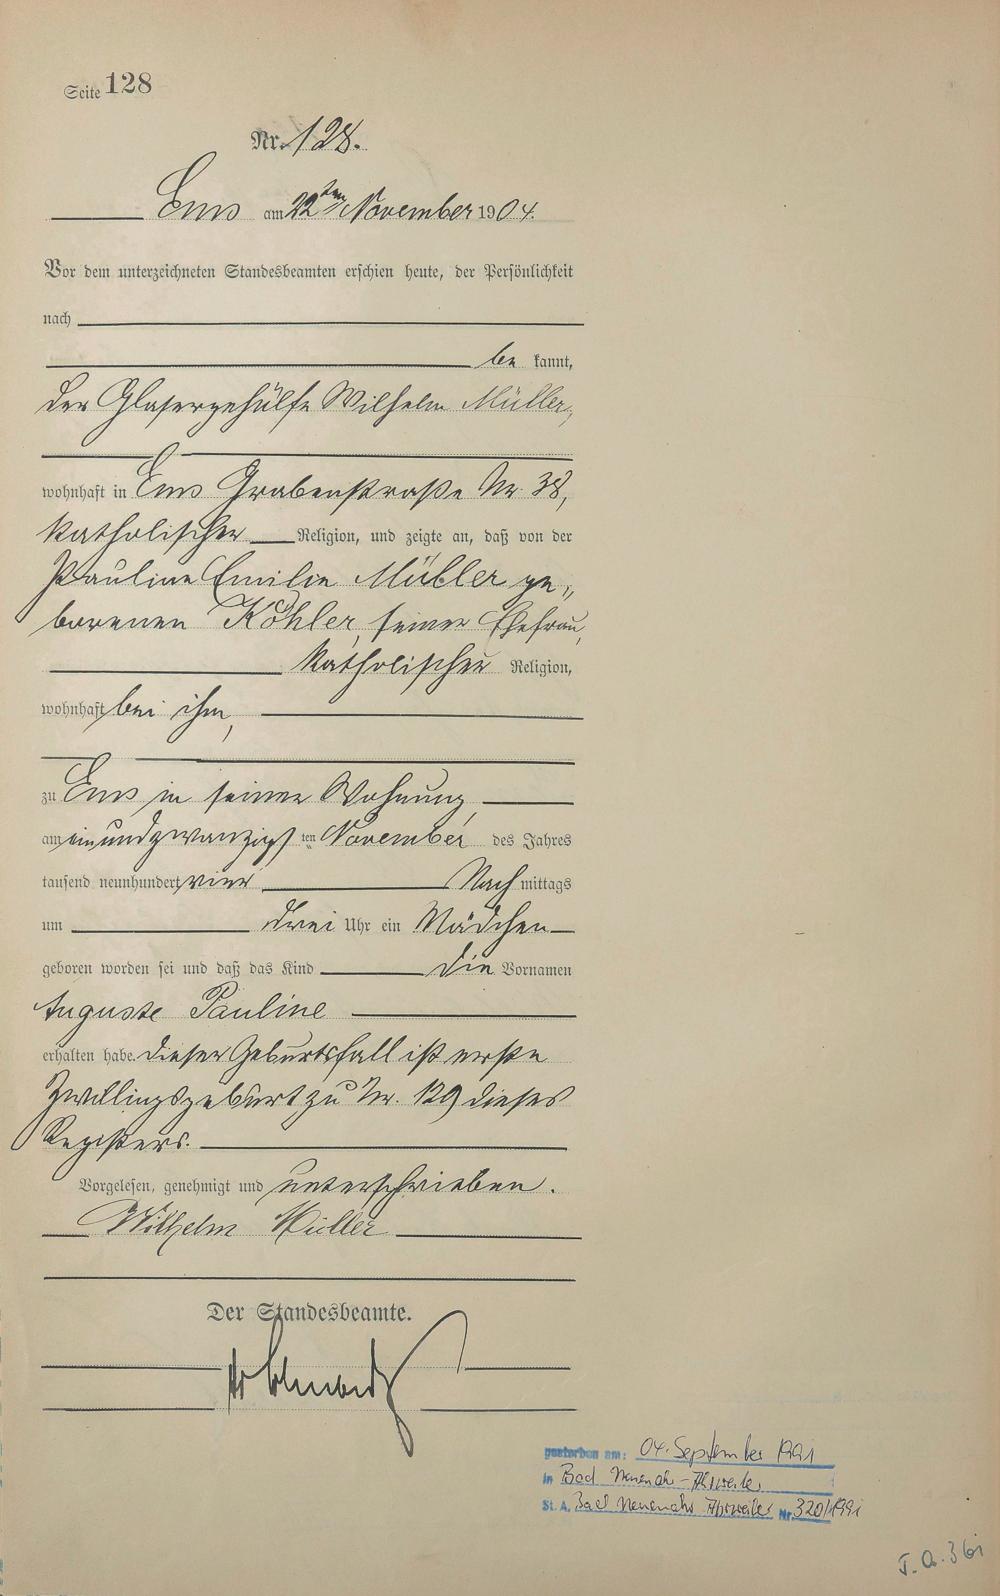 Seite 128
Nr. 128.
Ems am 22ten November 1904.
Vor dem unterzeichneten Standesbeamten erschien heute, der Persönlichkeit
nach
be kannt,
der Glasergehülfe Wilhelm Müller,
wohnhaft in Ems Grabenstraße Nr. 38,
katholischer Religion, und zeigte an, daß von der
Pauline Emilie Müller ge„
borenen Köhler, seiner Ehefrau,
katholischer Religion,
wohnhaft bei ihm,
zu Ems in seiner Wohnung
am einundzwanzigsten November des Jahres
tausend neunhundert vier Nach mittags
um drei Uhr ein Mädchen
geboren worden sei und daß das Kind die Vornamen
Auguste Pauline
erhalten habe. Dieser Geburtsfall ist erste
Zwillingsgeburt zu Nr. 129 dieses
Registers.
Vorgelesen, genehmigt und unterschrieben.
Wilhelm Müller
Der Standesbeamte.
gestorben am: 04. September 1991
in Bad Neuenahr-Ahrweiler
St. A. Bad Neuenahr Ahrweiler Nr. 320/1991